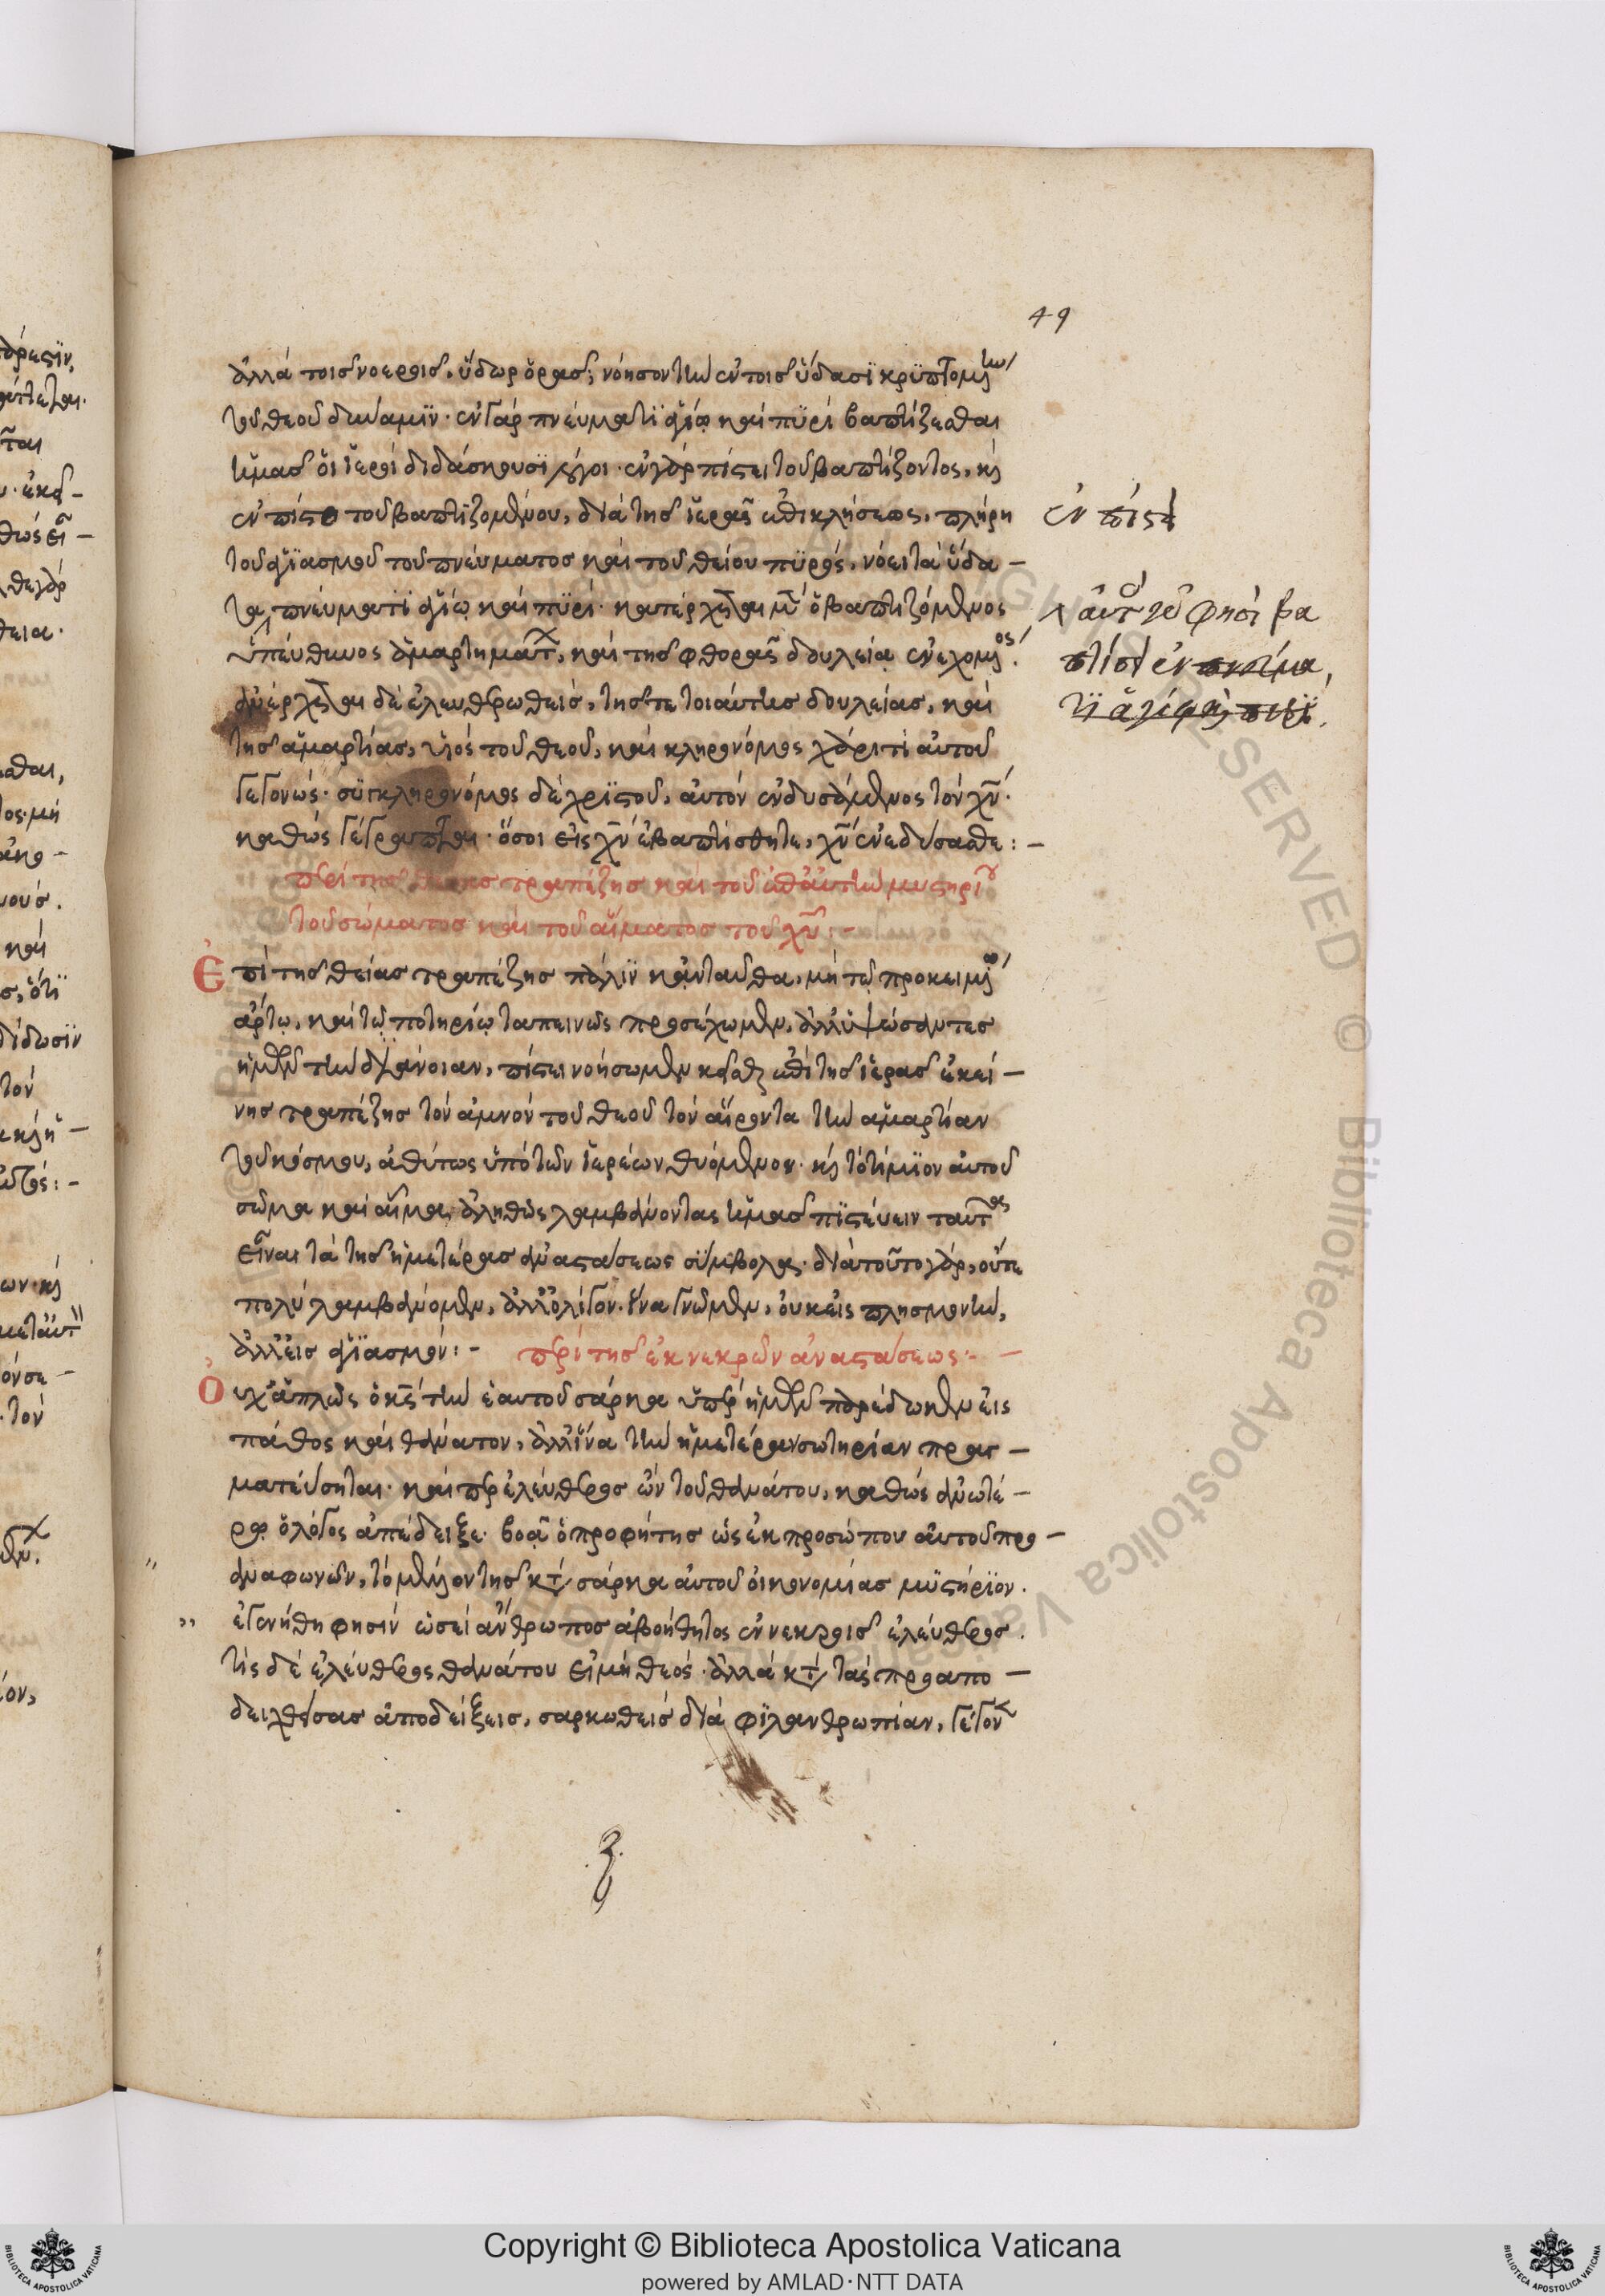 49
ἀλλὰ τοῖς νοεροῖς. ὕδωρ ὁρᾶς; νόησον τὴν ἐν τοῖς ὕδασϊ κρϋπτομ(έν)ην
τοῦ θεοῦ δυναμϊν· ἐν γὰρ πνεύματϊ ἁγίῳ καὶ πϋρὶ βαπτίζεσθαι
ἡμᾶς ὁι ἱεροὶ διδάσκουσϊ λόγοι· ἐν γὰρ πίστει τοῦ βαπτίζοντος, κ(αὶ)
ἐν πίστ τοῦ βαπτϊζομένου, διὰ τῆς ἱερᾶς ἐπικλήσεως, πλήρη
τοῦ ἁγϊασμοῦ τοῦ πνεύματος καὶ τοῦ θείου πϋρός, νόει τὰ ὕδα –
τα πνεύματϊ ἁγίῳ καὶ πϋρί· κατέρχεται μ(ὲν) ὁ βαπτιζόμενος
ὑπεύθυνος ἁμαρτημάτ(ων), καὶ τῆς φθορᾶς δουλεία ἐνεχόμ(εν)ος.
ἀνέρχεται δὲ ἐλευθρωθεὶς, τῆς τε τοιάυτης δουλείας, καὶ
τῆς ἁμαρτίας, υἱὸς τοῦ θεοῦ, καὶ κληρονόμος χάριτι αὐτοῦ
γεγονώς· συγκληρονόμος δὲ χρϊστοῦ, αὐτὸν ἐνδυσάμενος τὸν χν.
καθὼς γέγραπται· ὅσοι εἰς χν ἐβαπτίσθητε, χν ἐνεδύσασθε: –
περὶ τῆς θείας τραπέζης καὶ τοῦ ἐπ' αὐτὴν μυστηρίου
τοῦ σώματος καὶ τοῦ αἵματος τοῦ χυ: –
Ἐπὶ τῆς θείας τραπέζης πάλϊν κἀνταῦθα, μὴ τῷ προκειμ(έν)ῳ
ἄρτῳ, καὶ τῷ ποτηρίῳ ταπεινῶς προσέχωμεν, ἀλλ' ὑψώσαντες
ἡμῶν τὴν διάνοιαν, πίστει νοήσωμεν κεῖσθαι ἐπὶ τῆς ἱερᾶς ἐκεί –
νης τραπέζης τὸν ἀμνὸν τοῦ θεοῦ τὸν αἴροντα τὴν ἁμαρτίαν
τοῦ κόσμου, ἀθύτως ὑπὸ τῶν ἱερέων θυόμενον· κ(αὶ) τὸ τίμϊον αὐτοῦ
σῶμα καὶ αἷμα, ἀληθῶς λαμβάνοντας ἡμᾶς πϊστεύειν ταῦτα
εἶναι τὰ τῆς ἡμετέρας ἀναστάσεως σύμβολα· διὰ τοῦτο γὰρ, οὔτε
πολὺ λαμβάνομεν, ἀλλ' ὀλίγον. ἵνα γνῶμεν, ὁυκ εἰς πλησμονὴν,
ἀλλ' εἰς ἁγϊασμόν: – περὶ τῆς ἐκ νεκρῶν ἀναστάσεως· –
Ουχ ἁπλῶς ὁ κς τὴν ἑαυτοῦ σάρκα ὑπὲρ ἡμῶν παρέδωκεν εἰς
πάθος καὶ θάνατον, ἀλλ' ἵνα τὴν ἡμετέραν σωτηρίαν πραγ –
ματέυσηται· καίπερ ἐλέυθερος ὢν τοῦ θανάτου, καθὼς ἀνωτέ –
ρω ὁ λόγος ἀπέδειξε· βοᾷ ὁ προφήτης ὡς ἐκ προσώπου αὐτοῦ προ –
αναφωνῶν, τὸ μέλλον τῆς κατὰ σάρκα αὐτοῦ οἰκονομίας μϋστήρϊον.
ἐγενήθη φησὶν ὡσεὶ ἄνθρωπος ἀβοήθητος ἐν νεκροῖς ἐλεύθερος.
τίς δὲ ἐλεύθερος θανάτου εἰ μὴ θεός· ἀλλὰ κατὰ τὰς προαπο –
δειχθείσας ἀποδείξεις, σαρκωθεὶς διὰ φϊλανθρωπίαν, γέγον(ε)
ἐν πίστει
αὐτὸ(ς) γὰρ φησὶ βα
πτίσει ἐν πνεύμα,
τϊ ἁγίῳ κ(αὶ) πυρϊ.
Copyright © Biblioteca Apostolica Vaticana
powered by AMLAD·NTT DATA